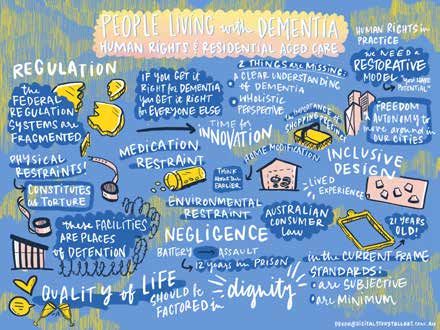 PEOPLE LIVING with DEMENTIA
HUMAN RIGHTS & RESIDENTIAL AGED CARE
REGULATION
the
FEDERAL
REGULATION
SYSTEMS are
FRAGMENTED
IF YOU GET it
RIGHT for DEMENTIA
You GET it RIGHT
for EVERYONE ELSE
2 THINGS are MISSING:
A CLEAR UNDERSTANDING
of DEMENTIA
WHOLISTIC
PERSPECTIVE
HUMAN RIGHTS in
PRACTICE
we NEED a
RESTORATIVE
MODEL
POTENTIAL"
TIME for
INNOVATION
the IMPORTANCE of
SHOPPING
FREEDOM
& AUTONOMY to
move around in
OUR CITIES
PHYSICAL
RESTRAINTS!
CONSTITUTES
as TORTURE
MEDICATION
RESTRAINT
HOME MODIFICATION
THINK
ABOUT this
EARLIER
INCLUSIVE
DESIGN
LIVED
EXPERIENCE
these FACILITIES
ARE PLACES
of DETENTION
ENVIRONMENTAL
RESTRAINT
NEGLIGENCE
BATTERY
ASSAULT
12 years in PRISON
AUSTRALIAN
CONSUMER
Law
21 YEARS
OLD!
in the CURRENT FRAME
STANDARDS:
are SUBJECTIVE
are MINIMUM
QUALITY of LIFE
SHOULD be
FACTORED in
dignity